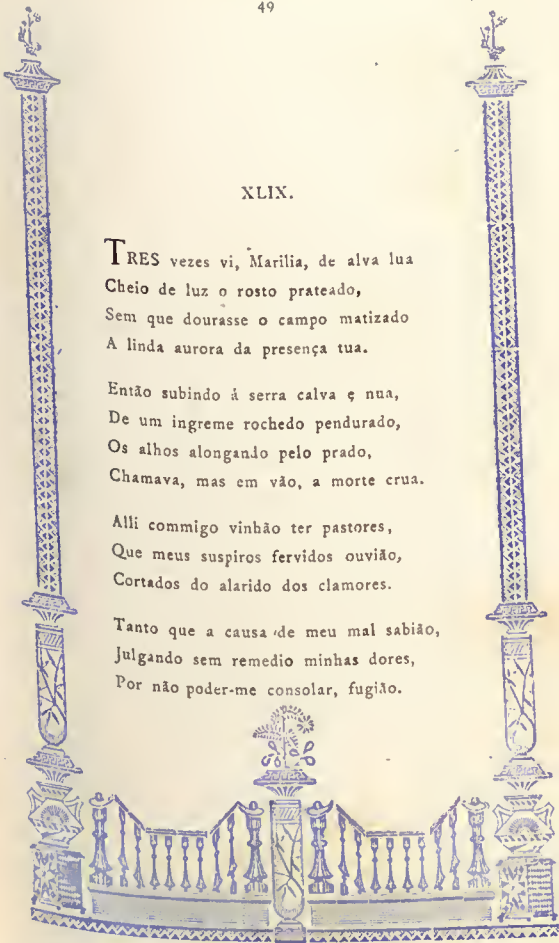 49
XLIX.
TRES vezes vi, Marilia, de alva lua
Cheio de luz o rosto prateado,
Sem que dourasse o campo matizado
A linda aurora da presença tua.
Então subindo á serra calva e nua,
De um ingreme rochedo pendurado,
Os alhos alongando pelo prado,
Chamava, mas em vão, a morte crua.
Alli commigo vinhão ter pastores,
Que meus suspiros fervidos ouvião,
Cortados do alarido dos clamores.
Tanto que a causa de meu mal sabião,
Julgando sem remedio minhas dores,
Por não poder-me consolar, fugião.